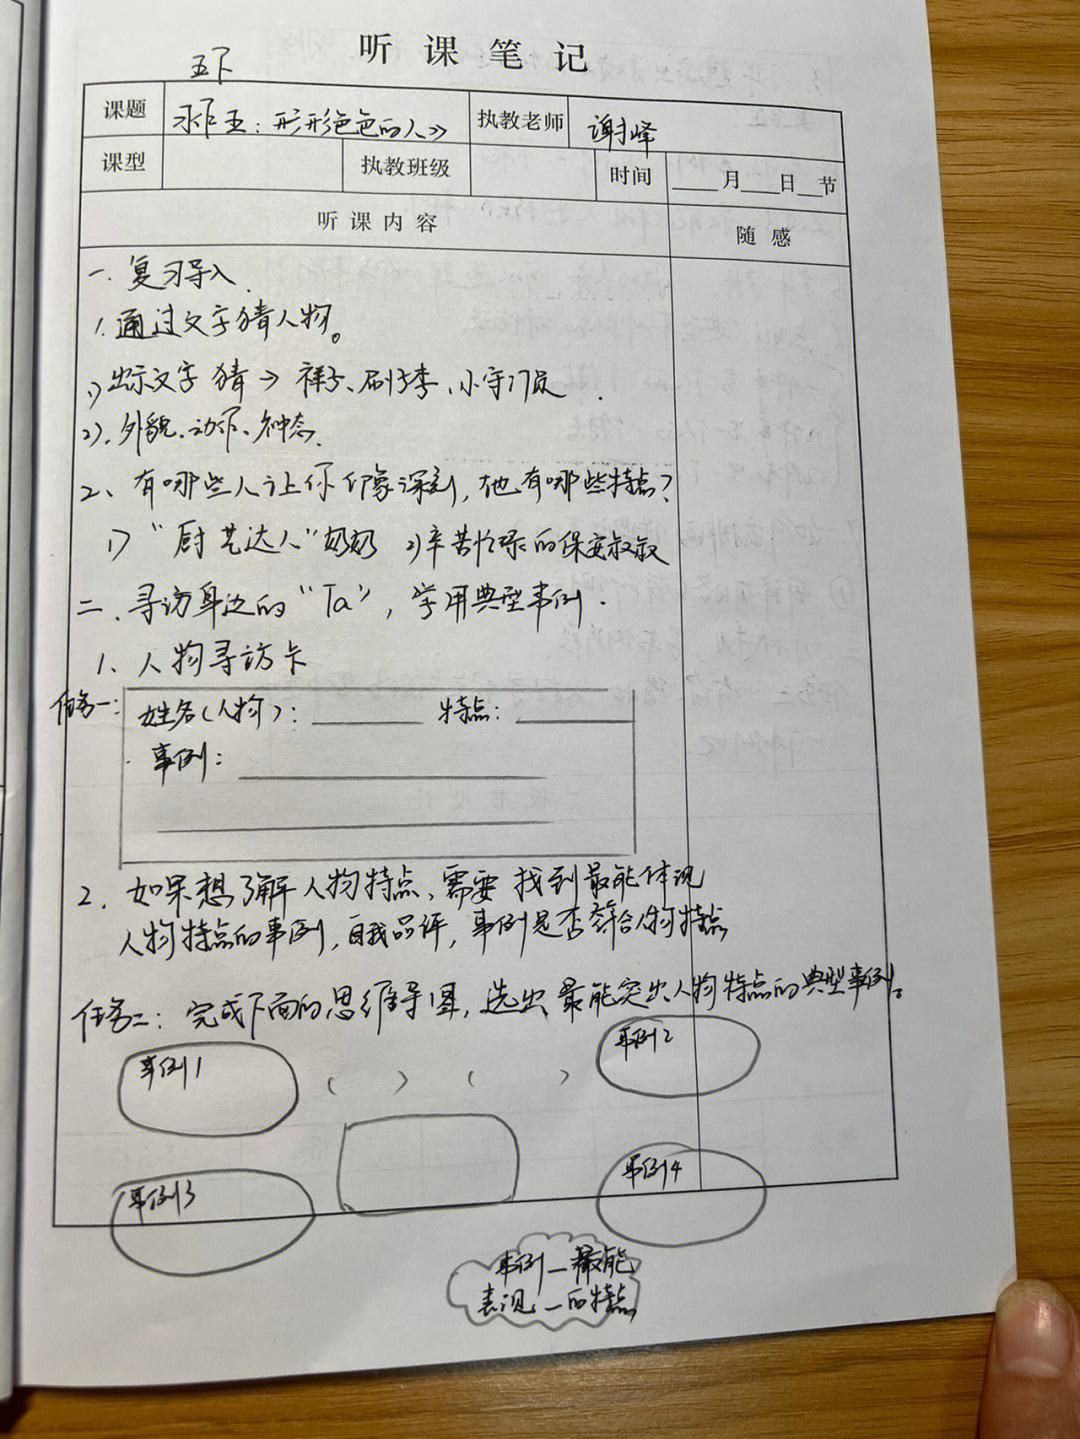 听课笔记
五下
课题 习作五：形形色色的人》 执教老师 谢峰
课型 执教班级 时间 月 日 节
听课内容 随感
一、复习导入.
1.通过文字猜人物。
1)出示文字 猜→ 祥子、刷子李、小守门员.
2).外貌、动作、神态.
2、有哪些人让你印像深刻,他有哪些特点?
1) "厨艺达人"奶奶 2)辛苦忙碌的保安叔叔
二、寻访身边的"Ta",学用典型事例.
1、人物寻访卡
任务一:
姓名(人物): 特点:
事例:
2.如果想了解人物特点、需要找到最能体现
人物特点的事例,自我品评,事例是否符合人物特点
任务二:完成下面的思维导图,选出最能突出人物特点的典型事例。
事例1 ( ) ( ) 事例2
事例3 事例4
事例一最能
表现一的特点